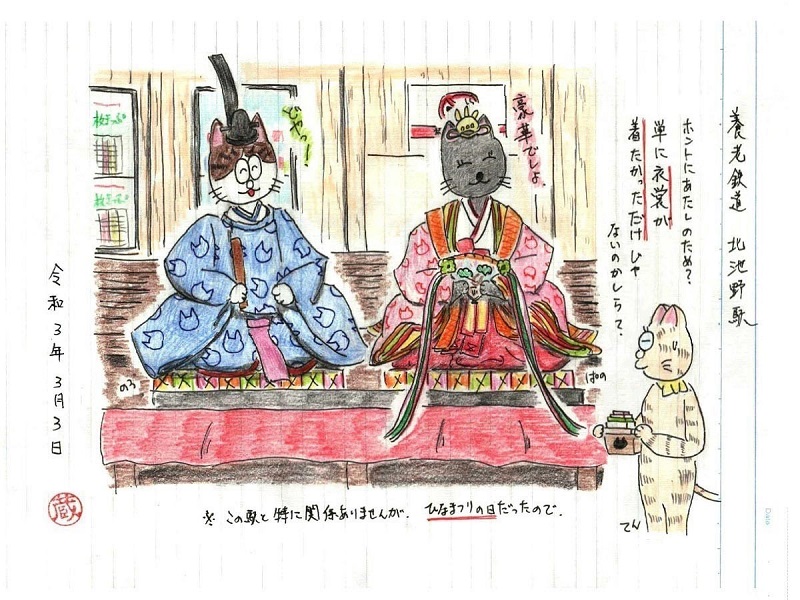 養老鉄道 北池野駅
ホントにあたしのため?
単に衣裳が
着たかっただけじゃ
ないのかしらって。
豪華でしょ
どやっ!
のろ
ぱの
てん
令和3年 3月3日
蔵
※ この駅と特に関係ありませんが、ひなまつりの日だったので。